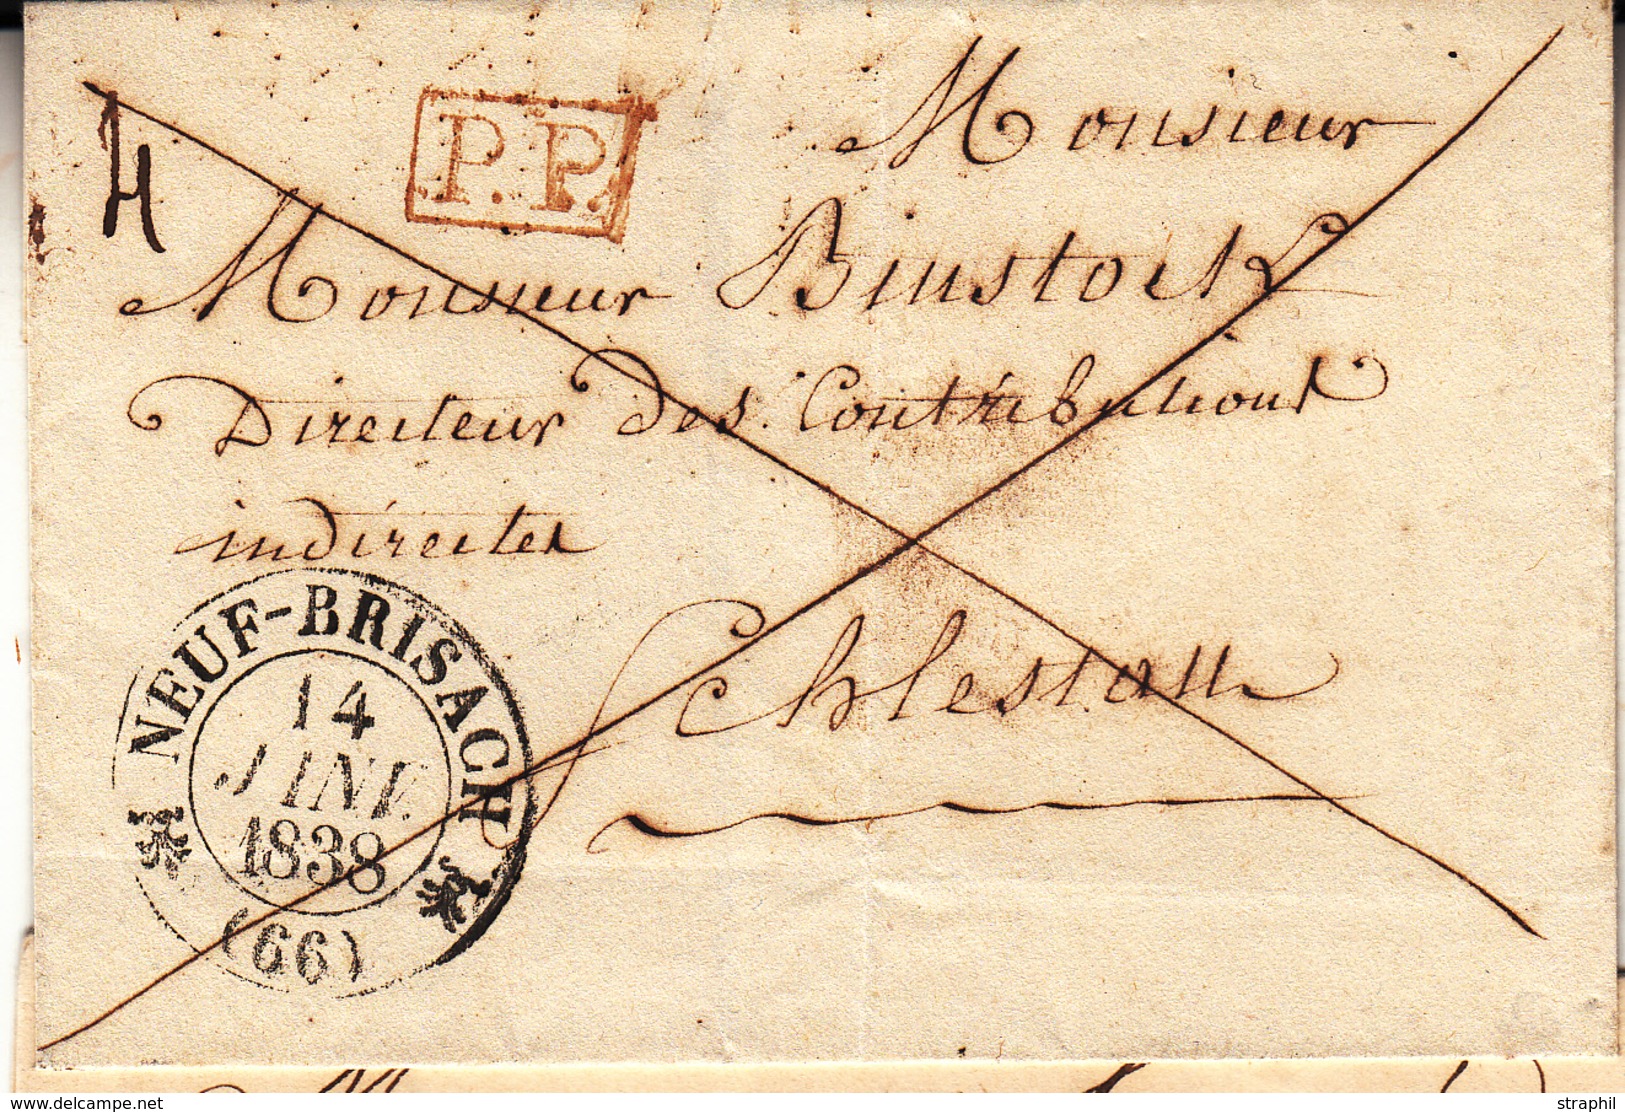 P.P.
Monsieur
Monsieur Binstock
Directeur des Contributions
indirectes
Schlestatt
NEUF-BRISACH
14
JANV.
1838
(66)
delcampe.net
straphil